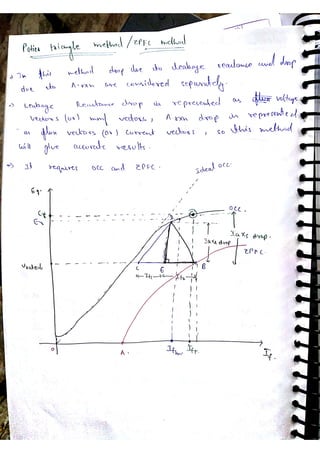 Potier triangle method / ZPFC method
→ In this method drop due to leakage reactance and drop
due to A·rxn are considered separately.
→ Leakage Reactance drop is represented as voltage
vectors (or) mmf vectors, A rxn drop is represented
as flux vectors (or) current vectors, so this method
will give accurate results.
→ It requires OCC and ZPFC.
Ideal OCC.
Eg.
OCC.
Er
drop.
drop
ZPFC.
Vrated
C
E
B
O
A.
If